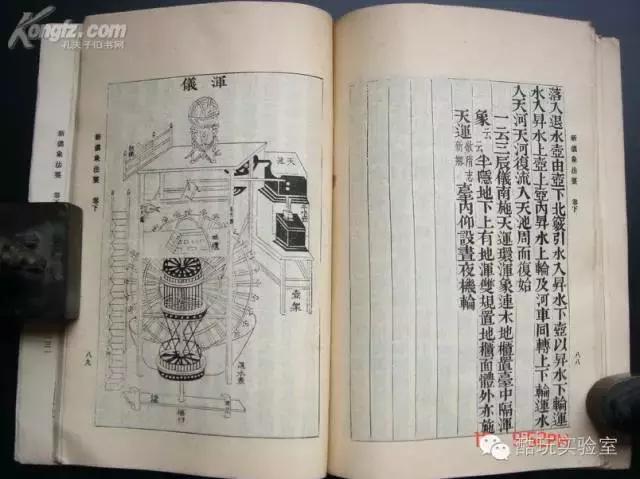 Kongfz.com
孔夫子旧书网
新儀象法要 卷下
八八
落入退水壺由壺下北竅引水入昇水下壺以昇水下輪運
水入昇水上壺上壺內昇水上輪及河車同轉上下輪運水
入天河天河復流入天池周而復始
一云三辰儀南施天運環渾象連木地櫃置臺中隔渾
象云云半隱地下上有地渾雙規置地櫃面體外亦施
天運 臺內仰設晝夜機輪
渾儀
天池
壺架
退水壺
新儀象法要 卷下
八九
酷玩实验室